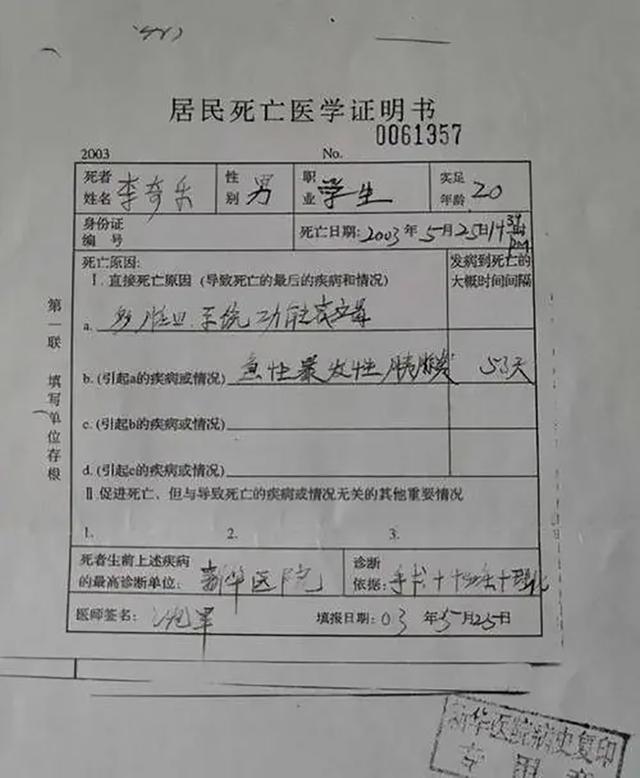 居民死亡医学证明书
2003 No. 0061357
死者姓名 李奇乐 性别 男 职业 学生 实足年龄 20
身份证编号 死亡日期:2003年5月25日
死亡原因: 发病到死亡的大概时间间隔
Ⅰ.直接死亡原因(导致死亡的最后的疾病和情况)
a. 多脏器系统功能衰竭
b.(引起a的疾病或情况) 急性暴发性胰腺炎 53天
c.(引起b的疾病或情况)
d.(引起c的疾病或情况)
Ⅱ促进死亡、但与导致死亡的疾病或情况无关的其他重要情况
1. 2. 3.
死者生前上述疾病的最高诊断单位: 新华医院 诊断依据: 手术+ +理化
医师签名: 填报日期:03年5月25日
第一联 填写单位存根
新华医院病史复印
专用章